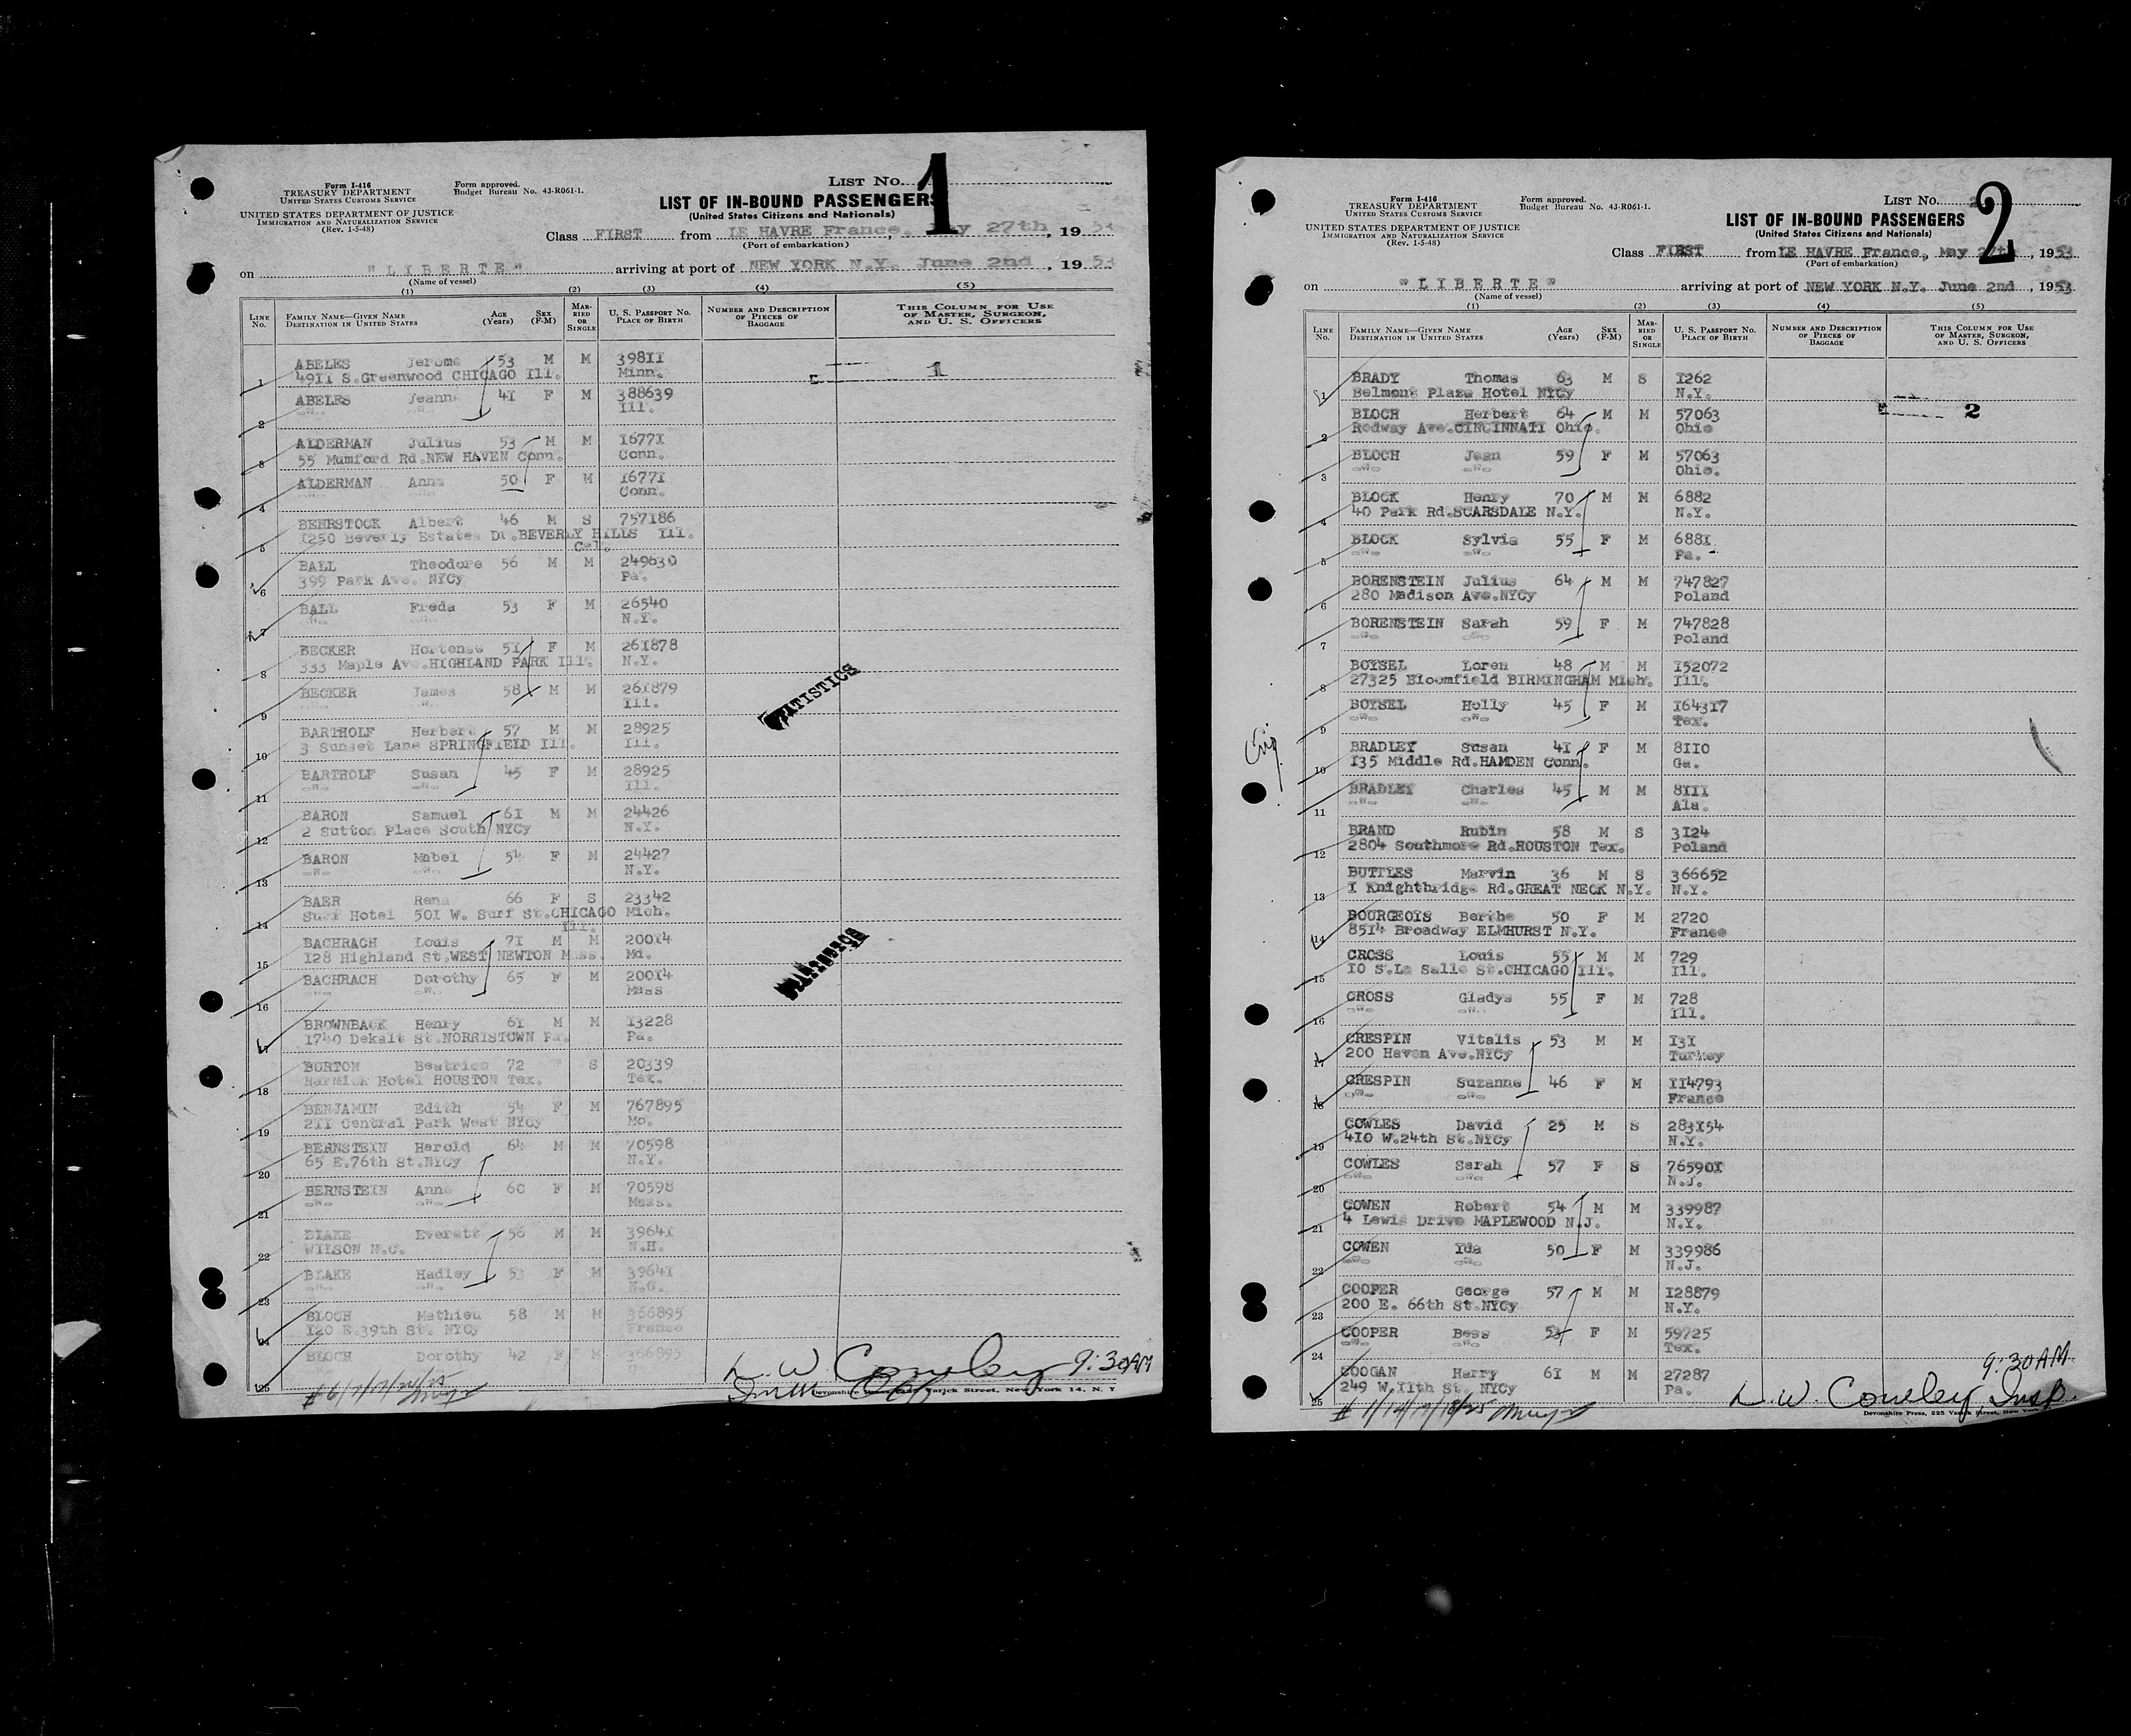 Form I-416
TREASURY DEPARTMENT
UNITED STATES CUSTOMS SERVICE
UNITED STATES DEPARTMENT OF JUSTICE
IMMIGRATION AND NATURALIZATION SERVICE
(Rev. 1-5-48)
Form approved.
Budget Bureau No. 43-R061-1.
LIST No. 1
LIST OF IN-BOUND PASSENGERS
(United States Citizens and Nationals)
Class FIRST from LE HAVRE France, May 27th, 1953
(Port of embarkation)
on "LIBERTE" arriving at port of NEW YORK N.Y. June 2nd, 1953
(Name of vessel)
(1) (2) (3) (4) (5)
LINE No. FAMILY NAME—GIVEN NAME DESTINATION IN UNITED STATES AGE (Years) SEX (F-M) MARRIED OR SINGLE U. S. PASSPORT No. PLACE OF BIRTH NUMBER AND DESCRIPTION OF PIECES OF BAGGAGE THIS COLUMN FOR USE OF MASTER, SURGEON, AND U. S. OFFICERS
1 ABELES Jerome 53 M M 398II 1
49II S.Greenwood CHICAGO Ill. Minn.
2 ABELES Jeann 4I F M 388639
-"- -"- Ill.
3 ALDERMAN Julius 53 M M I677I
55 Mumford Rd.NEW HAVEN Conn. Conn.
4 ALDERMAN Anna 50 F M I677I
-"- -"- Conn.
5 BEHRSTOCK Albert 46 M S 757I86
I250 Beverly Estates Dr.BEVERLY HILLS Ill.
Cal.
6 BALL Theodore 56 M M 249630
399 Park Ave. NYCy Pa.
7 BALL Freda 53 F M 26540
-"- -"- N.Y.
8 BECKER Hortense 5I F M 26I878
333 Maple Ave.HIGHLAND PARK Ill. N.Y.
9 BECKER James 58 M M 26I879
-"- -"- Ill.
10 BARTHOLF Herbert 57 M M 28925
3 Sunset Lane SPRINGFIELD Ill. Ill.
11 BARTHOLF Susan 45 F M 28925
-"- -"- Ill.
12 BARON Samuel 6I M M 24426
2 Sutton Place South NYCy N.Y.
13 BARON Mabel 54 F M 24427
-"- -"- N.Y.
14 BAER Rena 66 F S 23342
Surf Hotel 50I W. Surf St.CHICAGO Mich.
Ill.
15 BACHRACH Louis 7I M M 200I4
I28 Highland St.WEST NEWTON Mass. Md.
16 BACHRACH Dorothy 65 F M 200I4
-"- -"- Mass
17 BROWNBACK Henry 6I M M I3228
I740 Dekalb St.NORRISTOWN Pa. Pa.
18 BURTON Beatrice 72 S 20339
Hotel HOUSTON Tex. Tex.
19 BENJAMIN Edith 54 F M 767895
2II Central Park West NYCy Mo.
20 BERNSTEIN Harold 64 M M 70598
65 E.76th St.NYCy N.Y.
21 BERNSTEIN Anna 60 F M 70598
-"- -"- Mass.
22 BLAKE Everett 56 M M 3964I
WILSON N.C. N.H.
23 BLAKE Hadley 53 F M 3964I
-"- -"- N.C.
24 BLOCH Mathieu 58 M M 366895
I20 E.39th St. NYCy France
25 BLOCH Dorothy 42 F M 366895
STATISTICS
L. W. Conley 9:30AM
Devonshire Press, 225 Varick Street, New York 14, N. Y.
Form I-416
TREASURY DEPARTMENT
UNITED STATES CUSTOMS SERVICE
UNITED STATES DEPARTMENT OF JUSTICE
IMMIGRATION AND NATURALIZATION SERVICE
(Rev. 1-5-48)
Form approved.
Budget Bureau No. 43-R061-1.
LIST No. 2
LIST OF IN-BOUND PASSENGERS
(United States Citizens and Nationals)
Class FIRST from LE HAVRE France, May 27th, 1953
(Port of embarkation)
on "LIBERTE" arriving at port of NEW YORK N.Y. June 2nd, 1953
(Name of vessel)
(1) (2) (3) (4) (5)
LINE No. FAMILY NAME—GIVEN NAME DESTINATION IN UNITED STATES AGE (Years) SEX (F-M) MARRIED OR SINGLE U. S. PASSPORT No. PLACE OF BIRTH NUMBER AND DESCRIPTION OF PIECES OF BAGGAGE THIS COLUMN FOR USE OF MASTER, SURGEON, AND U. S. OFFICERS
1 BRADY Thomas 63 M S I262
Belmont Plaza Hotel NYCy N.Y.
2 BLOCH Herbert 64 M M 57063 2
Redway Ave.CINCINNATI Ohio. Ohio
3 BLOCH Jean 59 F M 57063
-"- -"- Ohio.
4 BLOCK Henry 70 M M 6882
40 Park Rd.SCARSDALE N.Y. N.Y.
5 BLOCK Sylvia 55 F M 688I
-"- -"- Pa.
6 BORENSTEIN Julius 64 M M 747827
280 Madison Ave.NYCy Poland
7 BORENSTEIN Sarah 59 F M 747828
-"- -"- Poland
8 BOYSEL Loren 48 M M I52072
27325 Bloomfield BIRMINGHAM Mich. Ill.
9 BOYSEL Holly 45 F M I643I7
-"- -"- Tex.
10 BRADLEY Susan 4I F M 8II0
I35 Middle Rd.HAMDEN Conn. Ga.
11 BRADLEY Charles 45 M M 8III
-"- -"- Ala.
12 BRAND Rubin 58 M S 3I24
2804 Southmore Rd.HOUSTON Tex. Poland
13 BUTTLES Marvin 36 M S 366652
I Knightbridge Rd.GREAT NECK N.Y. N.Y.
14 BOURGEOIS Berthe 50 F M 2720
85I4 Broadway ELMHURST N.Y. France
15 CROSS Louis 55 M M 729
I0 S.La Salle St.CHICAGO Ill. Ill.
16 CROSS Gladys 55 F M 728
-"- -"- Ill.
17 CRESPIN Vitalis 53 M M I3I
200 Haven Ave.NYCy Turkey
18 CRESPIN Suzanne 46 F M II4793
-"- -"- France
19 COWLES David 25 M S 283I54
4I0 W.24th St.NYCy N.Y.
20 COWLES Sarah 57 F S 76590I
-"- -"- N.J.
21 COWEN Robert 54 M M 339987
4 Lewis Drive MAPLEWOOD N.J. N.Y.
22 COWEN Ida 50 F M 339986
-"- -"- N.J.
23 COOPER George 57 M M I28879
200 E. 66th St.NYCy N.Y.
24 COOPER Bess 53 F M 59725
-"- -"- Tex.
25 COOGAN Harry 6I M M 27287
249 W.IIth St. NYCy Pa.
9:30AM
L. W. Conley, Insp.
Devonshire Press, 225 Varick Street, New York